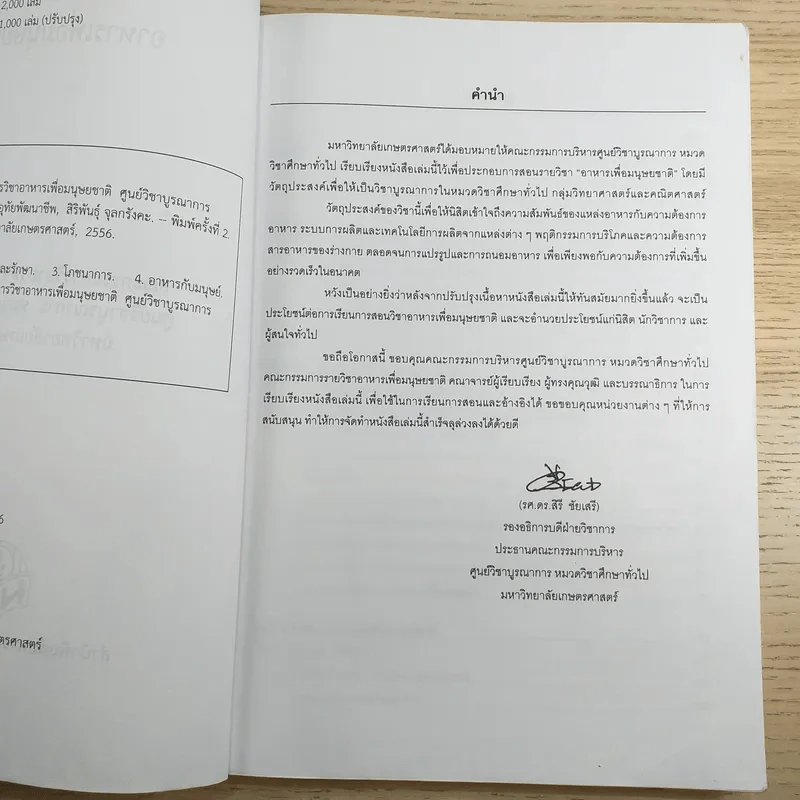 2,000 เล่ม
1,000 เล่ม (ปรับปรุง)
รวิชาอาหารเพื่อมนุษยชาติ ศูนย์วิชาบูรณาการ
อุทัยพัฒนาชีพ, สิริพันธุ์ จุลกรังคะ. -- พิมพ์ครั้งที่ 2.
ยาลัยเกษตรศาสตร์, 2556.
ละรักษา. 3. โภชนาการ. 4. อาหารกับมนุษย์.
ารวิชาอาหารเพื่อมนุษยชาติ ศูนย์วิชาบูรณาการ
6
ตรศาสตร์
คำนำ
มหาวิทยาลัยเกษตรศาสตร์ได้มอบหมายให้คณะกรรมการบริหารศูนย์วิชาบูรณาการ หมวด
วิชาศึกษาทั่วไป เรียบเรียงหนังสือเล่มนี้ไว้เพื่อประกอบการสอนรายวิชา "อาหารเพื่อมนุษยชาติ" โดยมี
วัตถุประสงค์เพื่อให้เป็นวิชาบูรณาการในหมวดวิชาศึกษาทั่วไป กลุ่มวิทยาศาสตร์และคณิตศาสตร์
วัตถุประสงค์ของวิชานี้เพื่อให้นิสิตเข้าใจถึงความสัมพันธ์ของแหล่งอาหารกับความต้องการ
อาหาร ระบบการผลิตและเทคโนโลยีการผลิตจากแหล่งต่าง ๆ พฤติกรรมการบริโภคและความต้องการ
สารอาหารของร่างกาย ตลอดจนการแปรรูปและการถนอมอาหาร เพื่อเพียงพอกับความต้องการที่เพิ่มขึ้น
อย่างรวดเร็วในอนาคต
หวังเป็นอย่างยิ่งว่าหลังจากปรับปรุงเนื้อหาหนังสือเล่มนี้ให้ทันสมัยมากยิ่งขึ้นแล้ว จะเป็น
ประโยชน์ต่อการเรียนการสอนวิชาอาหารเพื่อมนุษยชาติ และจะอำนวยประโยชน์แก่นิสิต นักวิชาการ และ
ผู้สนใจทั่วไป
ขอถือโอกาสนี้ ขอบคุณคณะกรรมการบริหารศูนย์วิชาบูรณาการ หมวดวิชาศึกษาทั่วไป
คณะกรรมการรายวิชาอาหารเพื่อมนุษยชาติ คณาจารย์ผู้เรียบเรียง ผู้ทรงคุณวุฒิ และบรรณาธิการ ในการ
เรียบเรียงหนังสือเล่มนี้ เพื่อใช้ในการเรียนการสอนและอ้างอิงได้ ขอขอบคุณหน่วยงานต่าง ๆ ที่ให้การ
สนับสนุน ทำให้การจัดทำหนังสือเล่มนี้สำเร็จลุล่วงลงได้ด้วยดี
(รศ.ดร.สิรี ชัยเสรี)
รองอธิการบดีฝ่ายวิชาการ
ประธานคณะกรรมการบริหาร
ศูนย์วิชาบูรณาการ หมวดวิชาศึกษาทั่วไป
มหาวิทยาลัยเกษตรศาสตร์